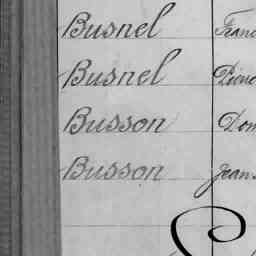 Busnel Franc
Busnel Pierre
Busson Dom
Busson Jean